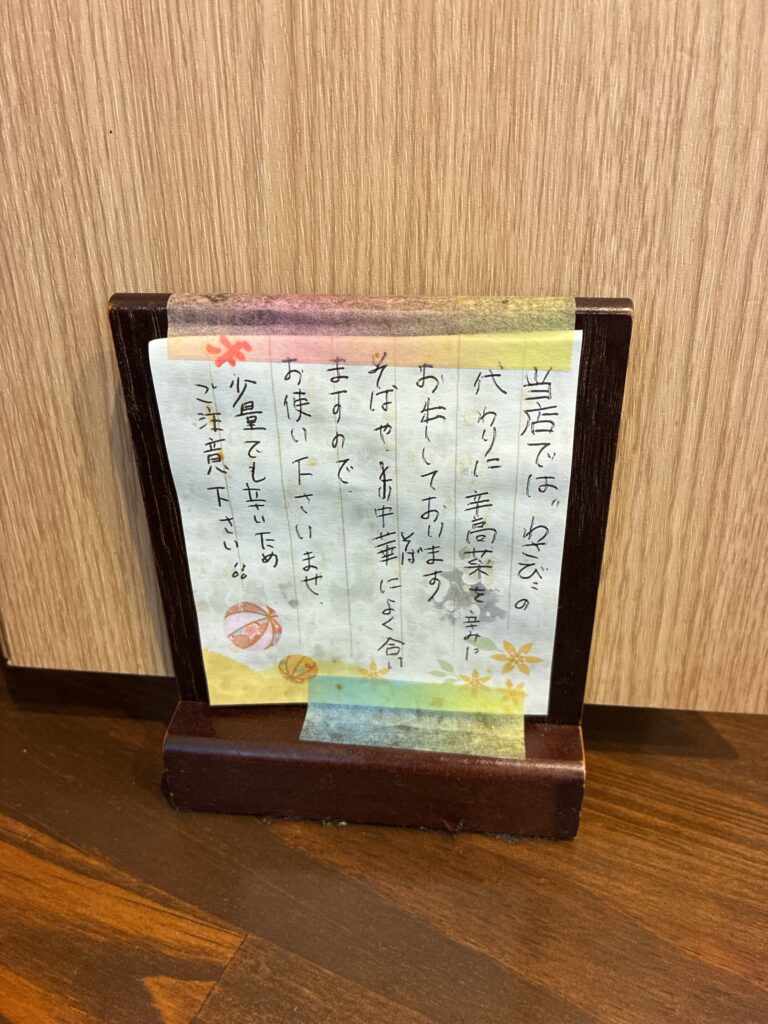 当店では“わさび”の
代わりに辛高菜を辛みに
お出ししております
そばや中華そばによく合い
ますので、
お使い下さいませ.
少量でも辛いため
ご注意下さい!!